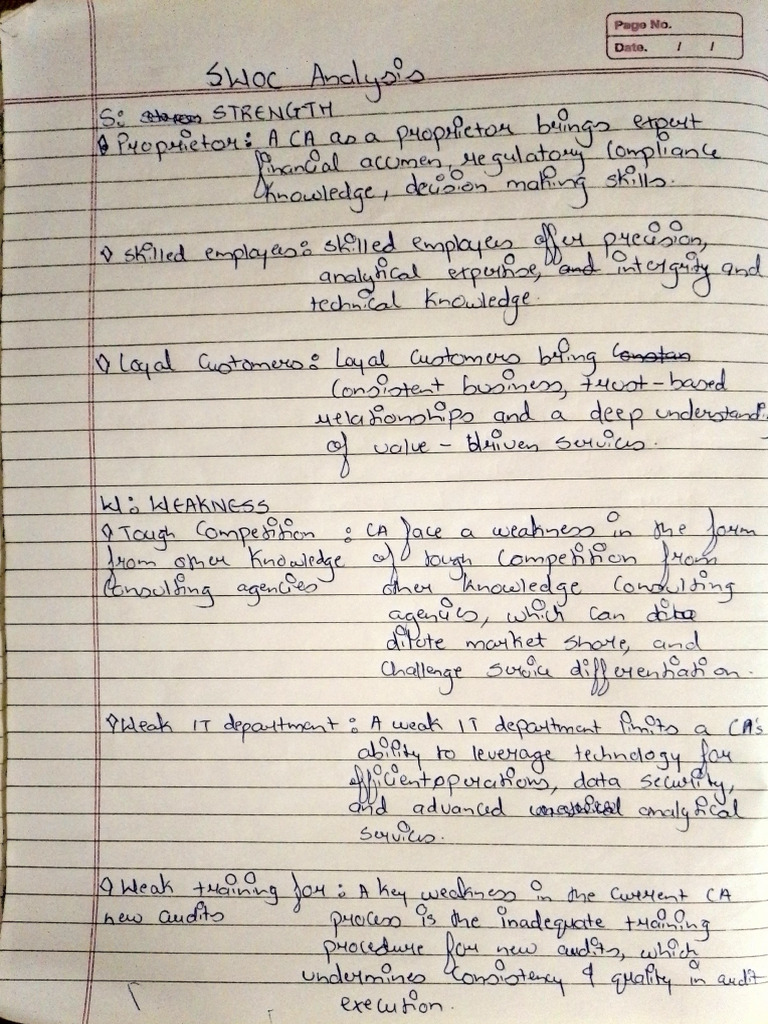 Page No.
Date. / /
SWOC Analysis
S: STRENGTH
Proprietor: A CA as a proprietor brings expert
financial accumen, regulatory compliance
knowledge, decision making skills.
skilled employees: skilled employees offer precision,
analytical expertise, and intergrity and
technical knowledge.
Loyal Customers: Loyal customers bring Constan
consistent business, trust-based
relationships and a deep understandi
of value-driven services.
W: WEAKNESS
Tough Competition : CA face a weakness in the form
from other knowledge of tough competition from
consulting agencies other knowledge consulting
agencies, which can
dilute market share, and
challenge service differentiation.
Weak IT department: A weak IT department limits a CA's
ability to leverage technology for
efficient operations, data security,
and advanced analytical
services.
Weak training for: A key weakness in the current CA
new audits process is the inadequate training
procedure for new audits, which
undermines consistency & quality in audit
execution.